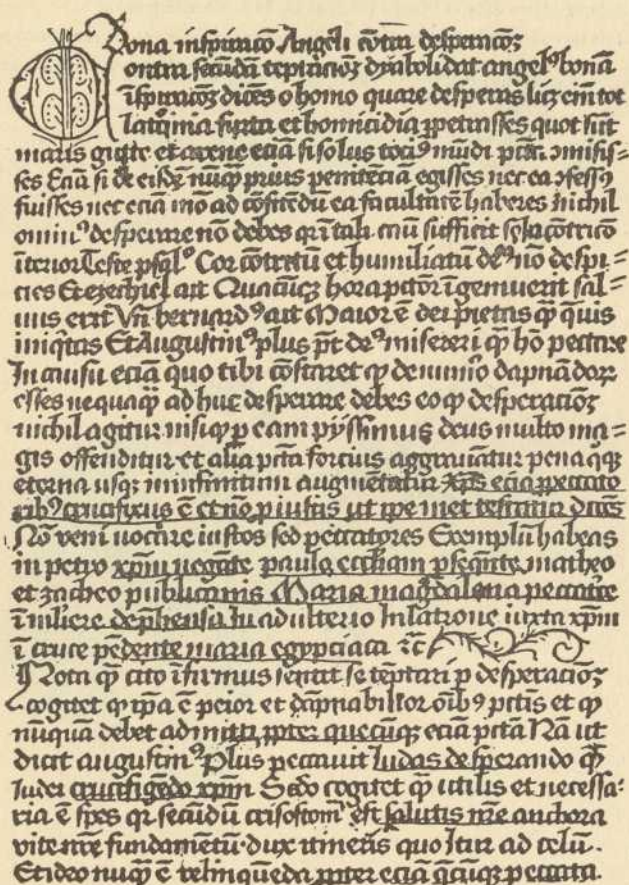 Bona inspiracõ Angeli cõtra desperacõꝫ
Contra secũdã tẽptaciõꝫ dyaboli dat angelꝰ bonã
ĩspiracõꝫ dicẽs o homo quare desperas licꝫ eñ tot
latrocinia furta et homicidia ꝑpetrasses quot sunt
maris gutte et arene eciã si solus tociꝰ mũdi pctã ꝯmisis-
ses Eciã si de eisdẽ nũqꝫ prius penitẽciã egisses nec ea ꝯfessꝰ
fuisses nec eciã mõ ad cõfitẽdũ ea facultatẽ haberes nichil
ominꝰ desperare nõ debes qr ĩ tali casu sufficit sola cõtricõ
ĩterior Teste psalꝰ Cor cõtritũ et humiliatum deꝰ nõ despi=
cies Et ezechiel ait Quacũqꝫ hora pctõr ĩgemuerit sal=
uus erit Vñ bernardꝰ ait Maior ẽ dei pietas qꝫ quis
iniqtas Et Augustinꝰ plus pt deꝰ misereri qꝫ hõ peccare
In casu eciã quo tibi cõstaret qꝫ de numõ dapnãdorꝝ
esses nequaqꝫ ad huc desperare debes eo qꝫ desperaciõꝫ
nichil agitur nisi qꝫ ꝑ eam pyssimus deus multo ma=
gis offenditur et alia pctã forcius aggrauãtur pena qꝫ
eterna usqꝫ in infinitum augmẽtatur Xp̃s eciã ꝓ peccato
ribꝰ crucifixus ẽ et nõ ꝓ iustis ut ip̃e met testatur dicẽs
Nõ veni uocare iustos sed peccatores Exemplũ habeas
in petro xp̃m negãte paulo eccliam ꝑseqũte matheo
et zacheo publicanis Maria magdalena peccatrice
ĩ muliere dep̃hensa in adulterio In latrone iuxta xp̃m
ĩ cruce pẽdente maria egypciaca ⁊c̃
Nota qꝫ cito ĩfirmus sentit se tẽptari ꝑ desperaciõꝫ
cogitet qꝫ ip̃a ẽ peior et dãpnabilior oĩbꝰ pctis et qꝫ
nũquã debet admitti ꝓpter quecũqꝫ eciã pctã Nã ut
dicit augustinꝰ Plus peccauit Iudas desperando qꝫ
Iudei crucifigẽdo xp̃m Scdo cogitet qꝫ utilis et necessa=
ria ẽ spes qr secũdũ crisostomꝰ est salutis nr̃e anchora
vite nr̃e fundamẽtũ dux itineris quo itur ad celũ.
Et ideo nũqꝫ ẽ relinquẽda ꝓpter eciã qcũqꝫ peccata.